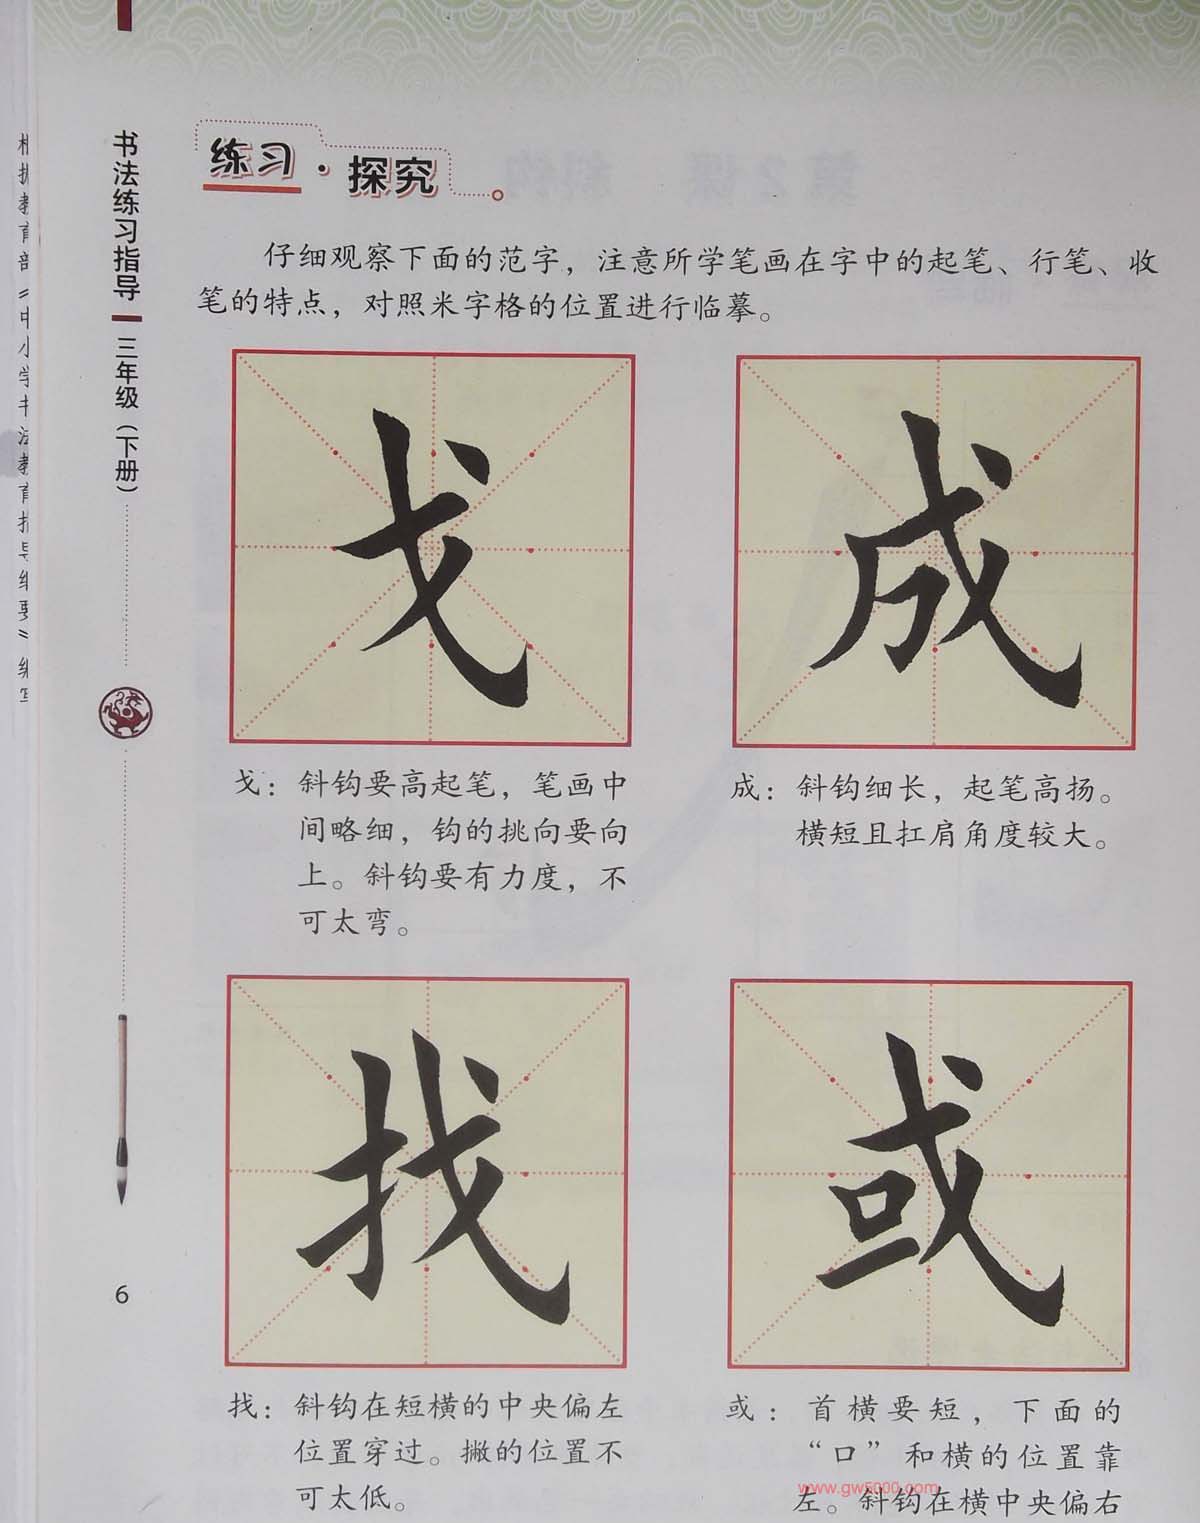 根据教育部《中小学书法教育指导纲要》编写
书法练习指导
三年级（下册）
6
练习·探究
仔细观察下面的范字，注意所学笔画在字中的起笔、行笔、收
笔的特点，对照米字格的位置进行临摹。
戈
成
戈：斜钩要高起笔，笔画中
间略细，钩的挑向要向
上。斜钩要有力度，不
可太弯。
成：斜钩细长，起笔高扬。
横短且扛肩角度较大。
找
或
找：斜钩在短横的中央偏左
位置穿过。撇的位置不
可太低。
或：首横要短，下面的
“口”和横的位置靠
左。斜钩在横中央偏右
www.gw5000.com